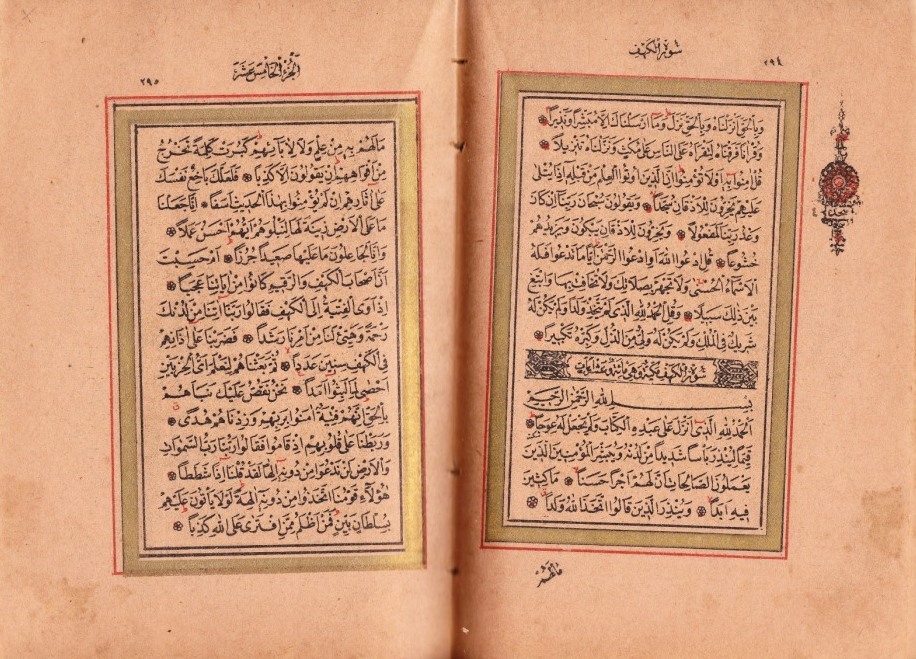 سُورَةُ الْكَهْفِ
٢٩٤
وَبِالْحَقِّ اَنْزَلْنَاهُ وَبِالْحَقِّ نَزَلَ وَمَا اَرْسَلْنَاكَ اِلَّا مُبَشِّراً وَنَذِيراً
وَقُرْاٰناً فَرَقْنَاهُ لِتَقْرَاَهُ عَلَى النَّاسِ عَلٰى مُكْثٍ وَنَزَّلْنَاهُ تَنْزِيلاً
قُلْ اٰمِنُوا بِهِ اَوْ لَا تُؤْمِنُوا اِنَّ الَّذِينَ اُوتُوا الْعِلْمَ مِنْ قَبْلِهِ اِذَا يُتْلٰى
عَلَيْهِمْ يَخِرُّونَ لِلْاَذْقَانِ سُجَّداً وَيَقُولُونَ سُبْحَانَ رَبِّنَا اِنْ كَانَ
وَعْدُ رَبِّنَا لَمَفْعُولاً وَيَخِرُّونَ لِلْاَذْقَانِ يَبْكُونَ وَيَزِيدُهُمْ
خُشُوعاً قُلِ ادْعُوا اللّٰهَ اَوِ ادْعُوا الرَّحْمٰنَ اَيًّا مَا تَدْعُوا فَلَهُ
الْاَسْمَاءُ الْحُسْنٰى وَلَا تَجْهَرْ بِصَلَاتِكَ وَلَا تُخَافِتْ بِهَا وَابْتَغِ
بَيْنَ ذٰلِكَ سَبِيلاً وَقُلِ الْحَمْدُ لِلّٰهِ الَّذِي لَمْ يَتَّخِذْ وَلَداً وَلَمْ يَكُنْ لَهُ
شَرِيكٌ فِي الْمُلْكِ وَلَمْ يَكُنْ لَهُ وَلِيٌّ مِنَ الذُّلِّ وَكَبِّرْهُ تَكْبِيراً
سورة الكهف مكية وهي مائة وعشر آيات
بِسْمِ اللّٰهِ الرَّحْمٰنِ الرَّحِيمِ
اَلْحَمْدُ لِلّٰهِ الَّذِي اَنْزَلَ عَلٰى عَبْدِهِ الْكِتَابَ وَلَمْ يَجْعَلْ لَهُ عِوَجاً
قَيِّماً لِيُنْذِرَ بَاْساً شَدِيداً مِنْ لَدُنْهُ وَيُبَشِّرَ الْمُؤْمِنِينَ الَّذِينَ
يَعْمَلُونَ الصَّالِحَاتِ اَنَّ لَهُمْ اَجْراً حَسَناً مَاكِثِينَ
فِيهِ اَبَداً وَيُنْذِرَ الَّذِينَ قَالُوا اتَّخَذَ اللّٰهُ وَلَداً
مَا لَهُمْ
اَلْجُزْءُ الْخَامِسَ عَشَرَ
٢٩٥
مَا لَهُمْ بِهِ مِنْ عِلْمٍ وَلَا لِاٰبَائِهِمْ كَبُرَتْ كَلِمَةً تَخْرُجُ
مِنْ اَفْوَاهِهِمْ اِنْ يَقُولُونَ اِلَّا كَذِباً فَلَعَلَّكَ بَاخِعٌ نَفْسَكَ
عَلٰى اٰثَارِهِمْ اِنْ لَمْ يُؤْمِنُوا بِهٰذَا الْحَدِيثِ اَسَفاً اِنَّا جَعَلْنَا
مَا عَلَى الْاَرْضِ زِينَةً لَهَا لِنَبْلُوَهُمْ اَيُّهُمْ اَحْسَنُ عَمَلاً
وَاِنَّا لَجَاعِلُونَ مَا عَلَيْهَا صَعِيداً جُرُزاً اَمْ حَسِبْتَ
اَنَّ اَصْحَابَ الْكَهْفِ وَالرَّقِيمِ كَانُوا مِنْ اٰيَاتِنَا عَجَباً
اِذْ اَوَى الْفِتْيَةُ اِلَى الْكَهْفِ فَقَالُوا رَبَّنَا اٰتِنَا مِنْ لَدُنْكَ
رَحْمَةً وَهَيِّئْ لَنَا مِنْ اَمْرِنَا رَشَداً فَضَرَبْنَا عَلٰى اٰذَانِهِمْ
فِي الْكَهْفِ سِنِينَ عَدَداً ثُمَّ بَعَثْنَاهُمْ لِنَعْلَمَ اَيُّ الْحِزْبَيْنِ
اَحْصٰى لِمَا لَبِثُوا اَمَداً نَحْنُ نَقُصُّ عَلَيْكَ نَبَاَهُمْ
بِالْحَقِّ اِنَّهُمْ فِتْيَةٌ اٰمَنُوا بِرَبِّهِمْ وَزِدْنَاهُمْ هُدًى
وَرَبَطْنَا عَلٰى قُلُوبِهِمْ اِذْ قَامُوا فَقَالُوا رَبُّنَا رَبُّ السَّمٰوَاتِ
وَالْاَرْضِ لَنْ نَدْعُوَا مِنْ دُونِهِ اِلٰهاً لَقَدْ قُلْنَا اِذاً شَطَطاً
هٰؤُلَاءِ قَوْمُنَا اتَّخَذُوا مِنْ دُونِهِ اٰلِهَةً لَوْلَا يَاْتُونَ عَلَيْهِمْ
بِسُلْطَانٍ بَيِّنٍ فَمَنْ اَظْلَمُ مِمَّنِ افْتَرٰى عَلَى اللّٰهِ كَذِباً